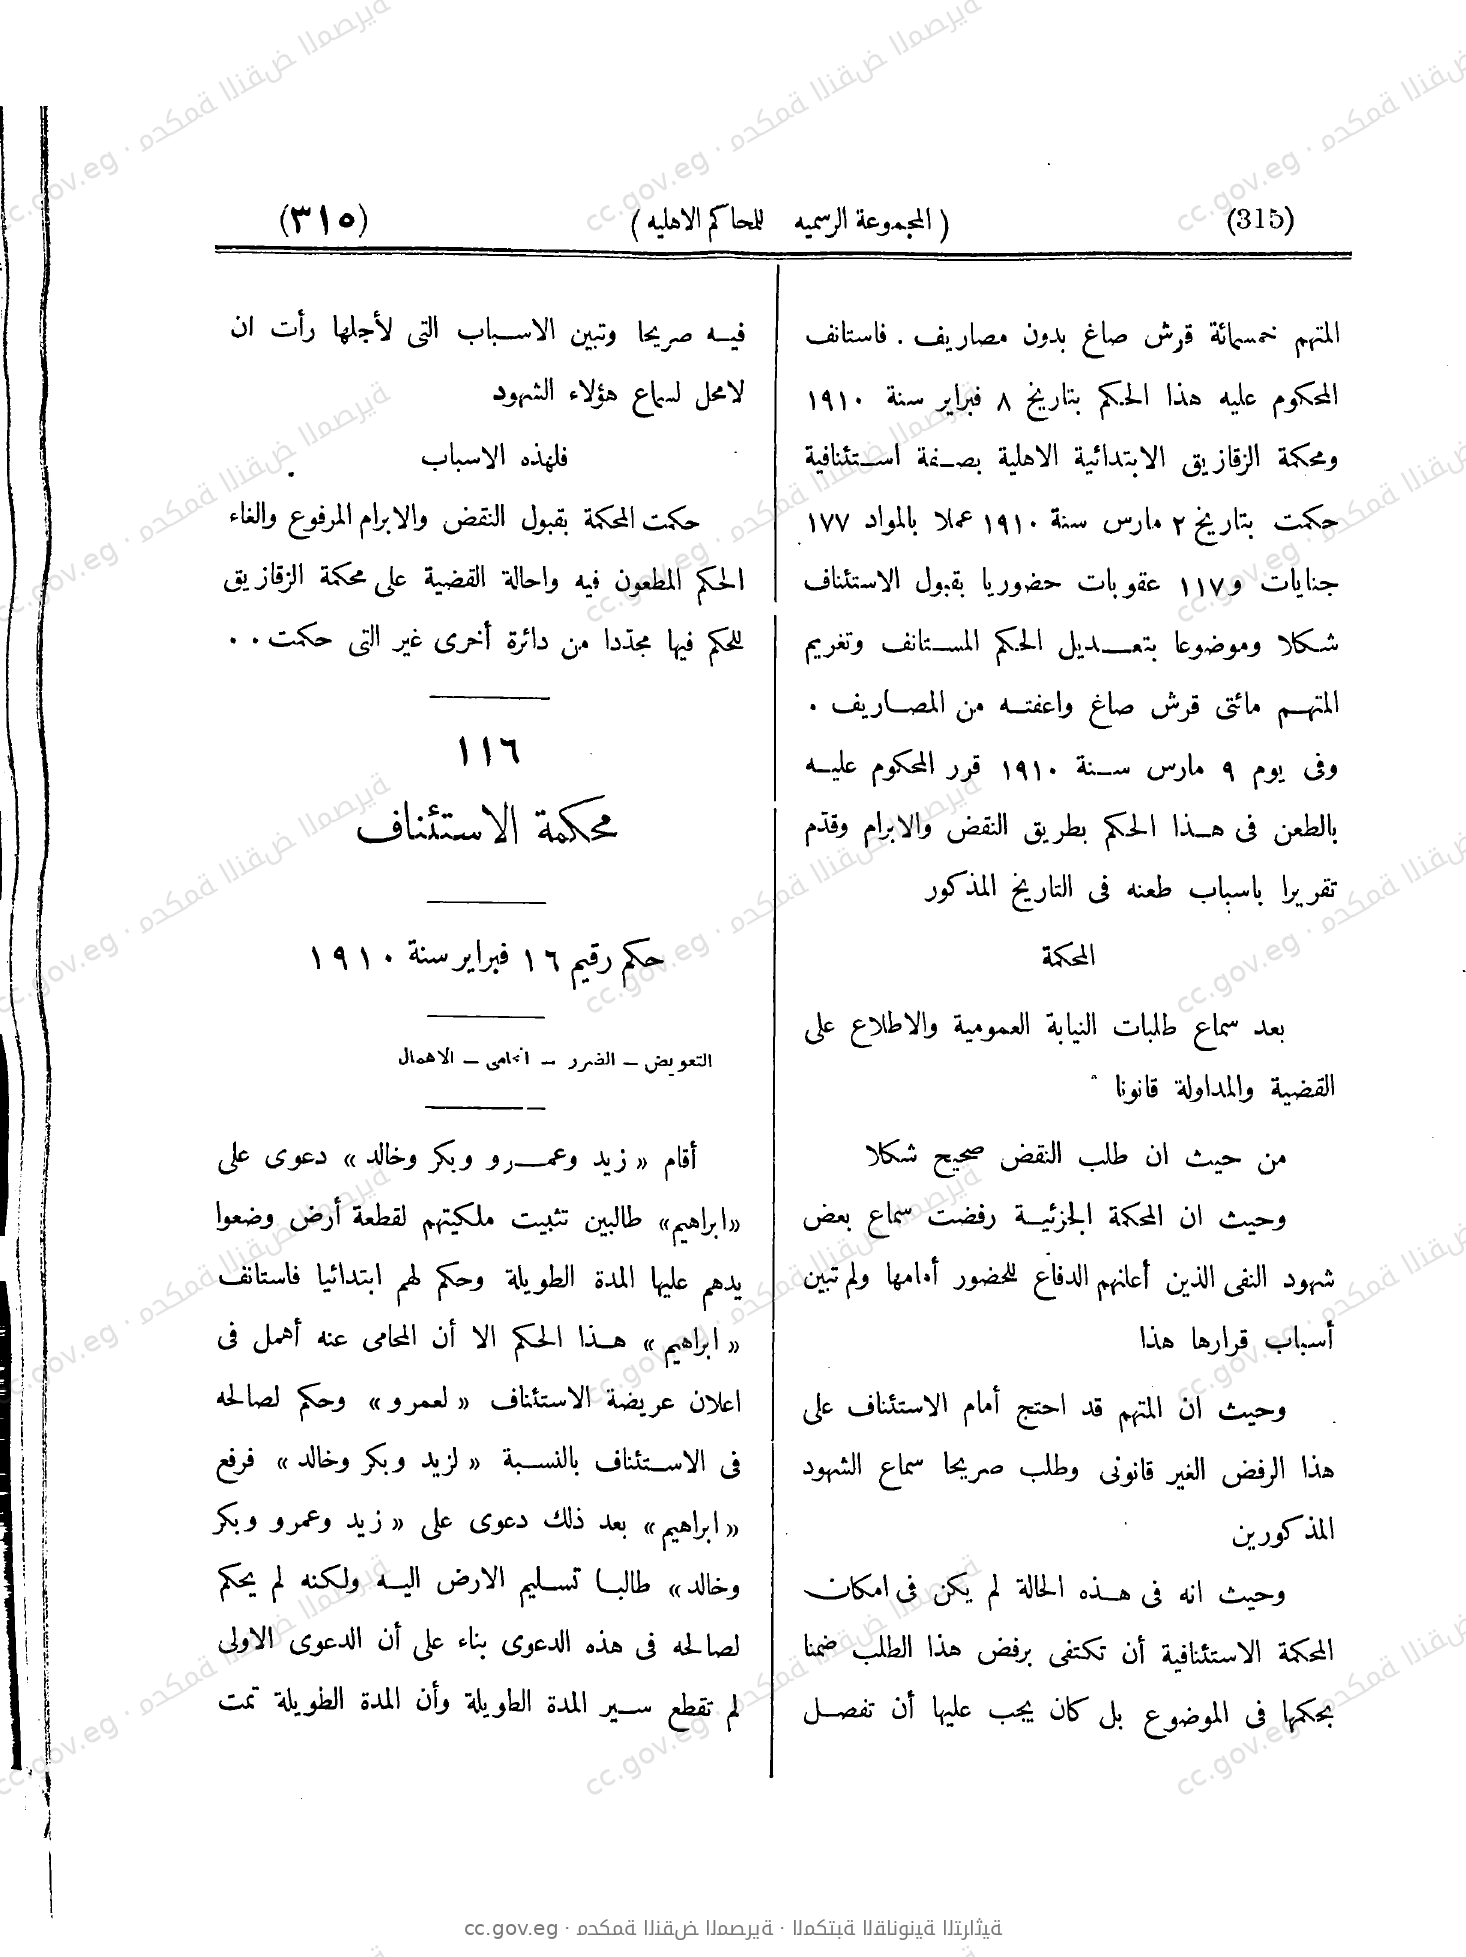 (315)
( المجموعة الرسميه للمحاكم الاهليه )
(٣١٥)
المتهم خمسمائة قرش صاغ بدون مصاريف . فاستانف
المحكوم عليه هذا الحكم بتاريخ ٨ فبراير سنة ١٩١٠
ومحكمة الزقازيق الابتدائية الاهلية بصفة استئنافية
حكمت بتاريخ ٢ مارس سنة ١٩١٠ عملا بالمواد ١٧٧
جنايات و١١٧ عقوبات حضوريا بقبول الاستئناف
شكلا وموضوعا بتعديل الحكم المستانف وتغريم
المتهم مائتى قرش صاغ واعفته من المصاريف .
وفى يوم ٩ مارس سنة ١٩١٠ قرر المحكوم عليه
بالطعن فى هذا الحكم بطريق النقض والابرام وقدّم
تقريرا باسباب طعنه فى التاريخ المذكور
المحكمة
بعد سماع طلبات النيابة العمومية والاطلاع على
القضية والمداولة قانونا
من حيث ان طلب النقض صحيح شكلا
وحيث ان المحكمة الجزئية رفضت سماع بعض
شهود النفى الذين أعلنهم الدفاع للحضور أمامها ولم تبين
أسباب قرارها هذا
وحيث ان المتهم قد احتج أمام الاستئناف على
هذا الرفض الغير قانونى وطلب صريحا سماع الشهود
المذكورين
وحيث انه فى هذه الحالة لم يكن فى امكان
المحكمة الاستئنافية أن تكتفى برفض هذا الطلب ضمنا
بحكمها فى الموضوع بل كان يجب عليها أن تفصل
فيه صريحا وتبين الاسباب التى لأجلها رأت ان
لامحل لسماع هؤلاء الشهود
فلهذه الاسباب
حكمت المحكمة بقبول النقض والابرام المرفوع والغاء
الحكم المطعون فيه واحالة القضية على محكمة الزقازيق
للحكم فيها مجدّدا من دائرة أخرى غير التى حكمت . .
١١٦
محكمة الاستئناف
حكم رقيم ١٦ فبراير سنة ١٩١٠
التعويض – الضرر – المحامى – الاهمال
أقام « زيد وعمرو وبكر وخالد » دعوى على
«ابراهيم» طالبين تثبيت ملكيتهم لقطعة أرض وضعوا
يدهم عليها المدة الطويلة وحكم لهم ابتدائيا فاستانف
« ابراهيم » هذا الحكم الا أن المحامى عنه أهمل فى
اعلان عريضة الاستئناف « لعمرو » وحكم لصالحه
فى الاستئناف بالنسبة « لزيد وبكر وخالد » فرفع
«ابراهيم» بعد ذلك دعوى على « زيد وعمرو وبكر
وخالد» طالبا تسليم الارض اليه ولكنه لم يحكم
لصالحه فى هذه الدعوى بناء على أن الدعوى الاولى
لم تقطع سير المدة الطويلة وأن المدة الطويلة تمت
cc.gov.eg · محكمة النقض المصرية · المكتبة القانونية التراثية